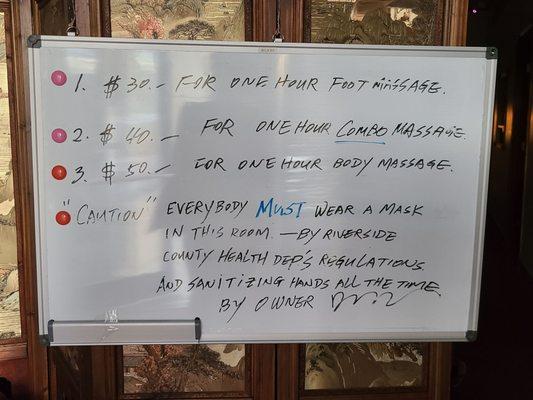 1. $30.- FOR ONE HOUR FOOT MASSAGE.
2. $40.- FOR ONE HOUR COMBO MASSAGE.
3. $50.- FOR ONE HOUR BODY MASSAGE.
"CAUTION" EVERYBODY MUST WEAR A MASK
IN THIS ROOM. - BY RIVERSIDE
COUNTY HEALTH DEP'S REGULATIONS.
AND SANITIZING HANDS ALL THE TIME.
BY OWNER